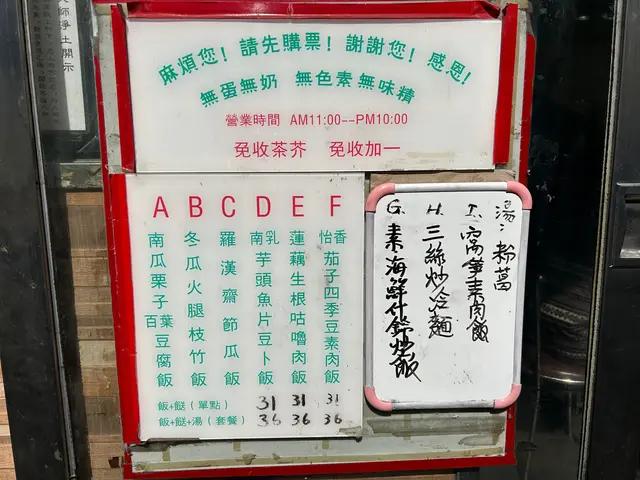 師淨土開示
麻煩您！請先購票！謝謝您！感恩！
無蛋無奶 無色素無味精
營業時間 AM11:00--PM10:00
免收茶芥 免收加一
A B C D E F
南瓜栗子百葉豆腐飯
冬瓜火腿枝竹飯
羅漢齋節瓜飯
南乳芋頭魚片豆卜飯
蓮藕生根咕嚕肉飯
怡香茄子四季豆素肉飯
飯+餸（單點） 31 31 31
飯+餸+湯（套餐） 36 36 36
湯：粉葛
I. 萵筍素肉飯
H. 三絲炒冷麵
G. 素海鮮什錦炒飯